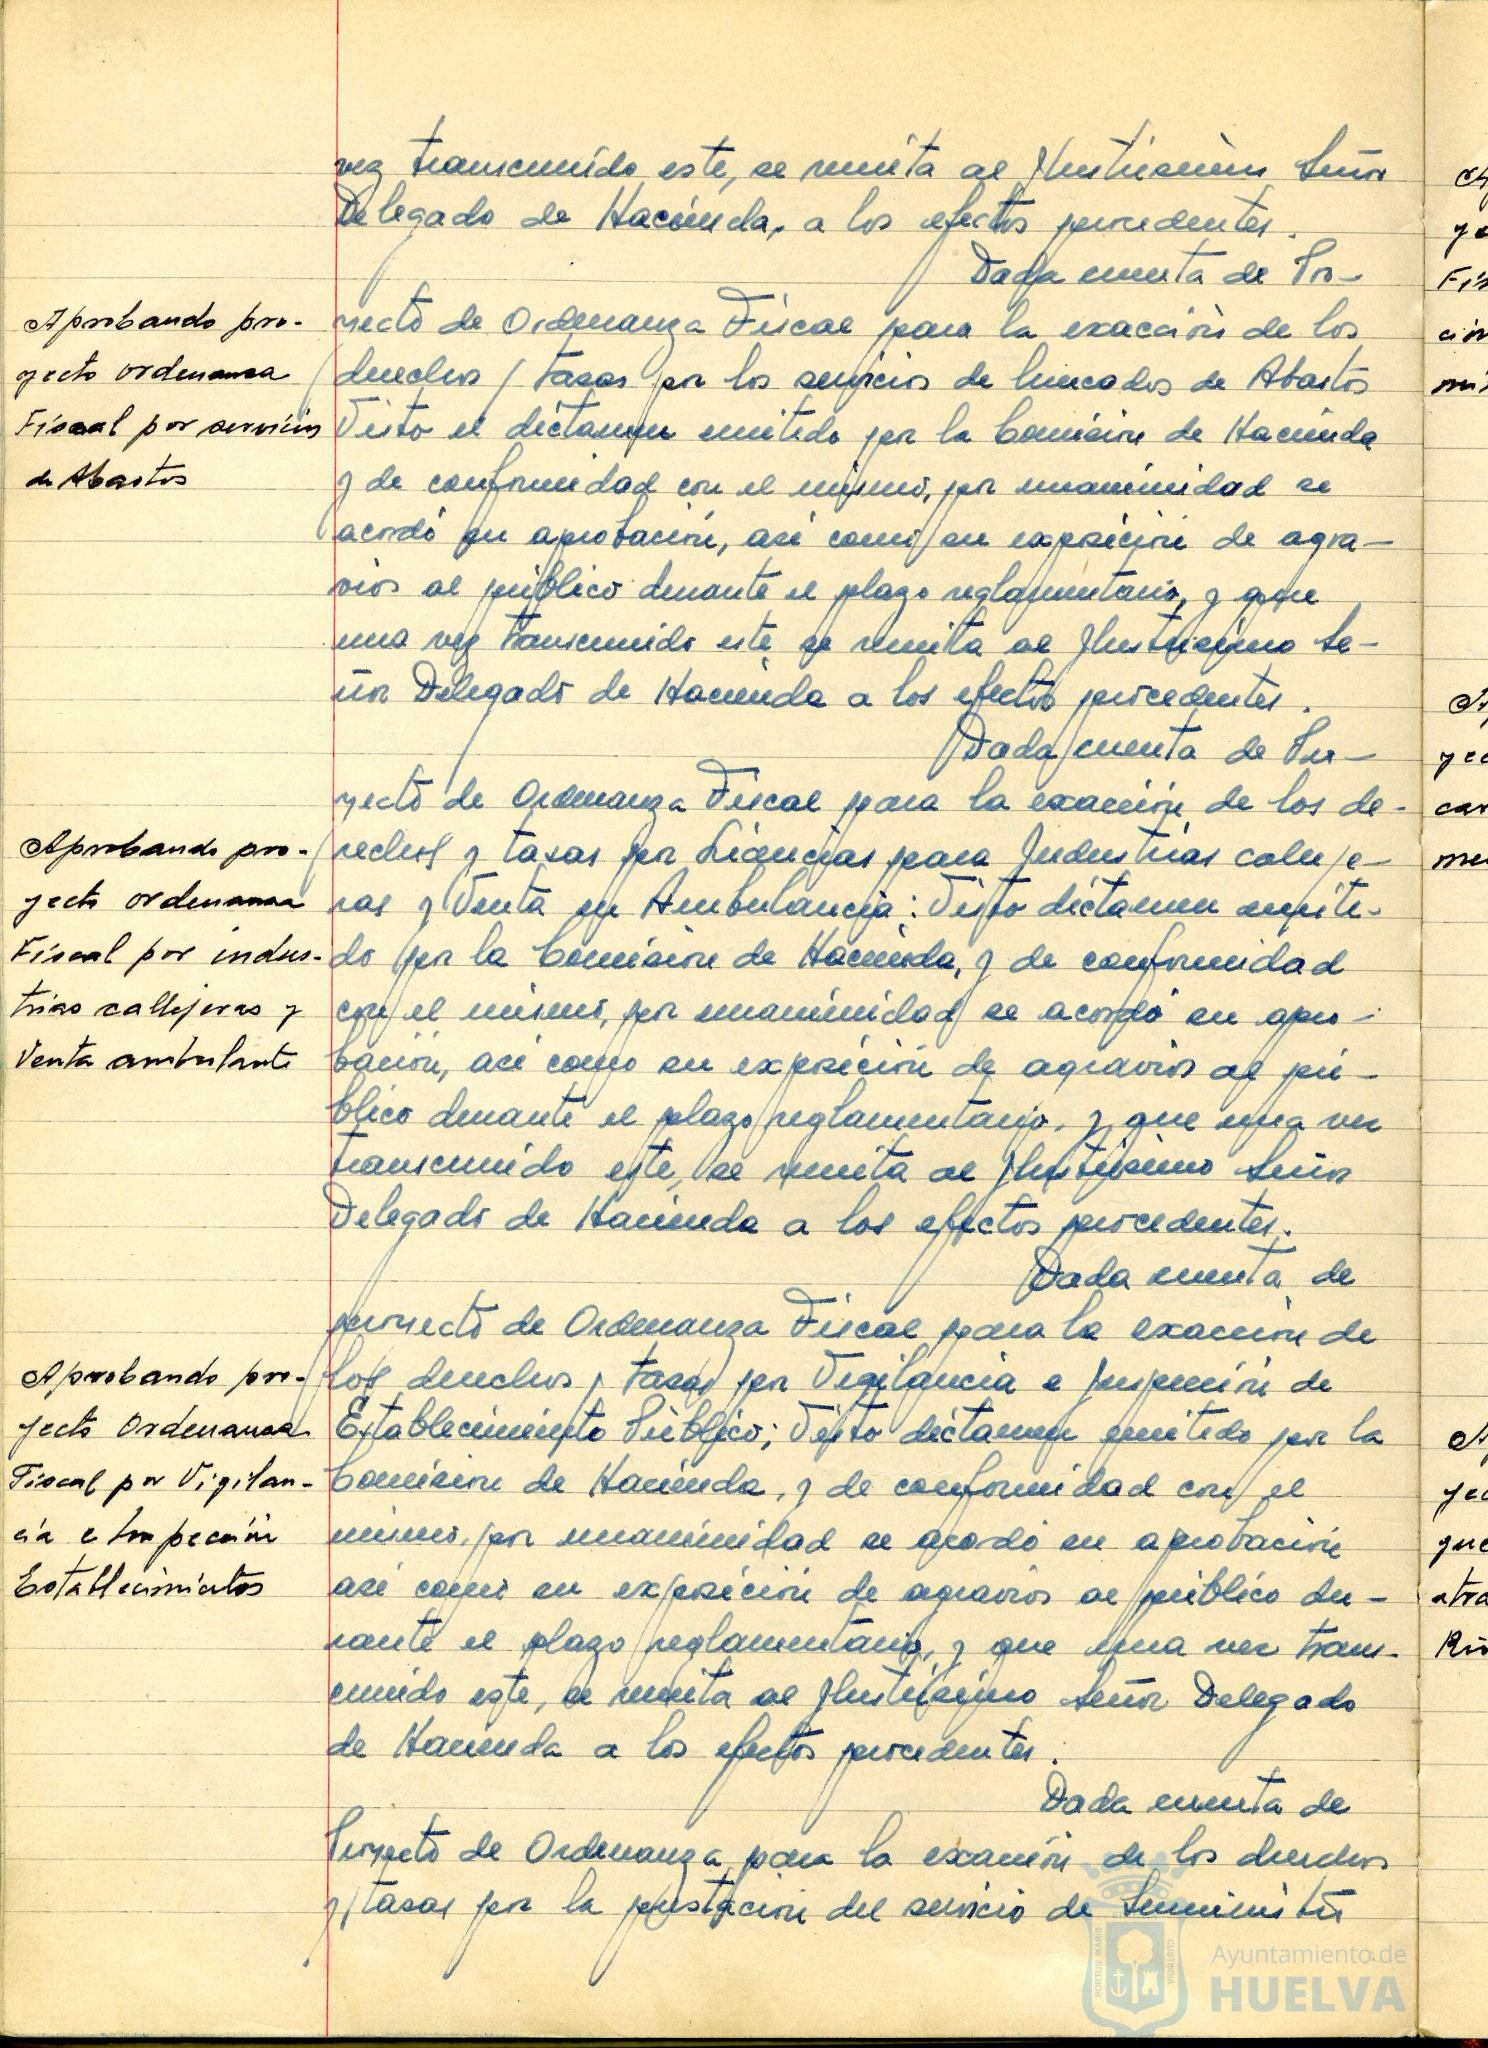 vez transcurrido este, se remita al Ilustrisimo Señor
Delegado de Hacienda, a los efectos procedentes.
Dada cuenta de Pro-
Aprobando pro-
yecto ordenanza
Fiscal por servicios
de Abastos
yecto de Ordenanza Fiscal para la exacción de los
derechos y tasas por los servicios de Mercados de Abastos
Visto el dictamen emitido por la Comisión de Hacienda
y de conformidad con el mismo, por unanimidad se
acordó su aprobación, asi como su exposición de agra-
vios al público durante el plazo reglamentario, y que
una vez transcurrido este se remita al Ilustrisimo Se-
ñor Delegado de Hacienda a los efectos procedentes.
Dada cuenta de Pro-
Aprobando pro-
yecto ordenanza
Fiscal por indus-
trias callejeras y
Venta ambulante
yecto de Ordenanza Fiscal para la exacción de los de-
rechos y tasas por Licencias para Industrias calleje-
ras y Venta en Ambulancia: Visto dictamen emiti-
do por la Comisión de Hacienda, y de conformidad
con el mismo, por unanimidad se acordó su apro-
bación, asi como su exposición de agravios al pú-
blico durante el plazo reglamentario, y que una vez
transcurrido este, se remita al Ilustrisimo Señor
Delegado de Hacienda a los efectos procedentes.
Dada cuenta de
Aprobando pro-
yecto Ordenanza
Fiscal por Vigilan-
cia e Inspección
Establecimientos
proyecto de Ordenanza Fiscal para la exacción de
los derechos y tasas por Vigilancia e Inspección de
Establecimiento Público; Visto dictamen emitido por la
Comisión de Hacienda, y de conformidad con el
mismo, por unanimidad se acordó su aprobación
asi como su exposición de agravios al público du-
rante el plazo reglamentario, y que una vez trans-
currido este, se remita al Ilustrisimo Señor Delegado
de Hacienda a los efectos procedentes.
Dada cuenta de
Proyecto de Ordenanza para la exacción de los derechos
y tasas por la prestación del servicio de Suministro
PORTUS MARIS
CUSTODIA
Ayuntamiento de
HUELVA